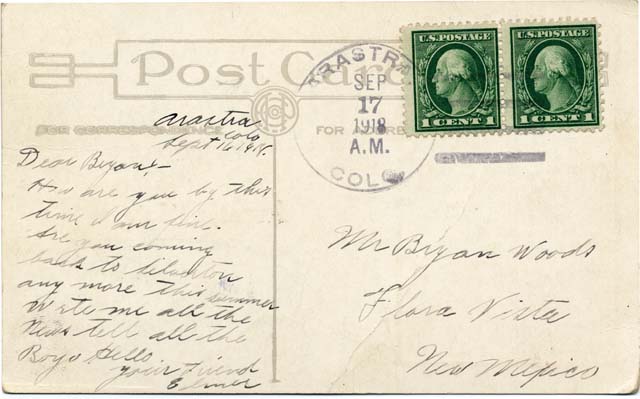 Post Card
U.S. POSTAGE
1 CENT 1
U.S. POSTAGE
1 CENT 1
ARASTRA
SEP
17
1918
A.M.
COLO.
FOR CORRESPONDENCE
FOR ADDRESS
Arastra
Colo
Sept 16 1918.
Dear Bryan:-
How are you by this
time I am fine.
Are you coming
back to Silverton
any more this summer
Write me all the
News tell all the
Boys Hello
your Friend
Elmer
Mr Bryan Woods
Flora Vista
New Mexico